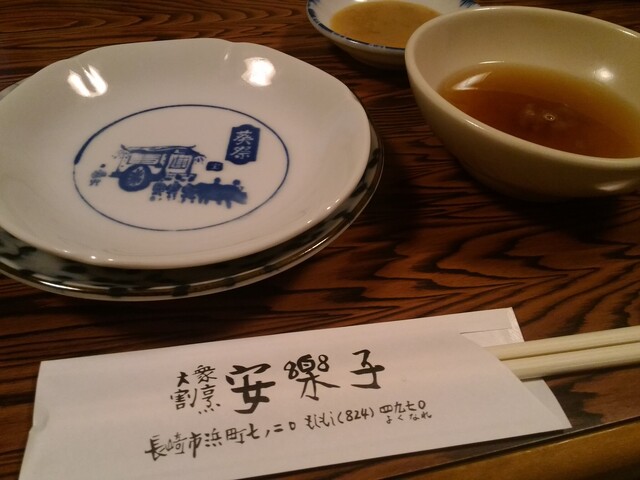 葵祭
大衆
割烹
安樂子
長崎市浜町七ノ二〇 もしもし(824)四九七〇
よくなれ